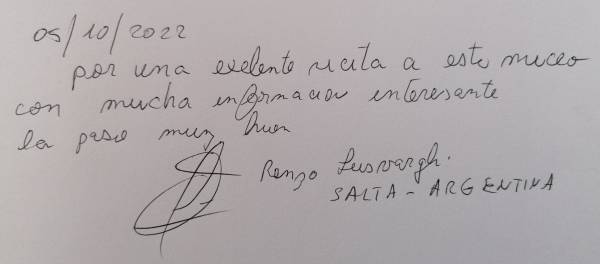 05/10/2022
por una exelente vicita a este museo
con mucha informacion interesante
la pase muy buen
Renzo Lusvargh.
SALTA - ARGENTINA